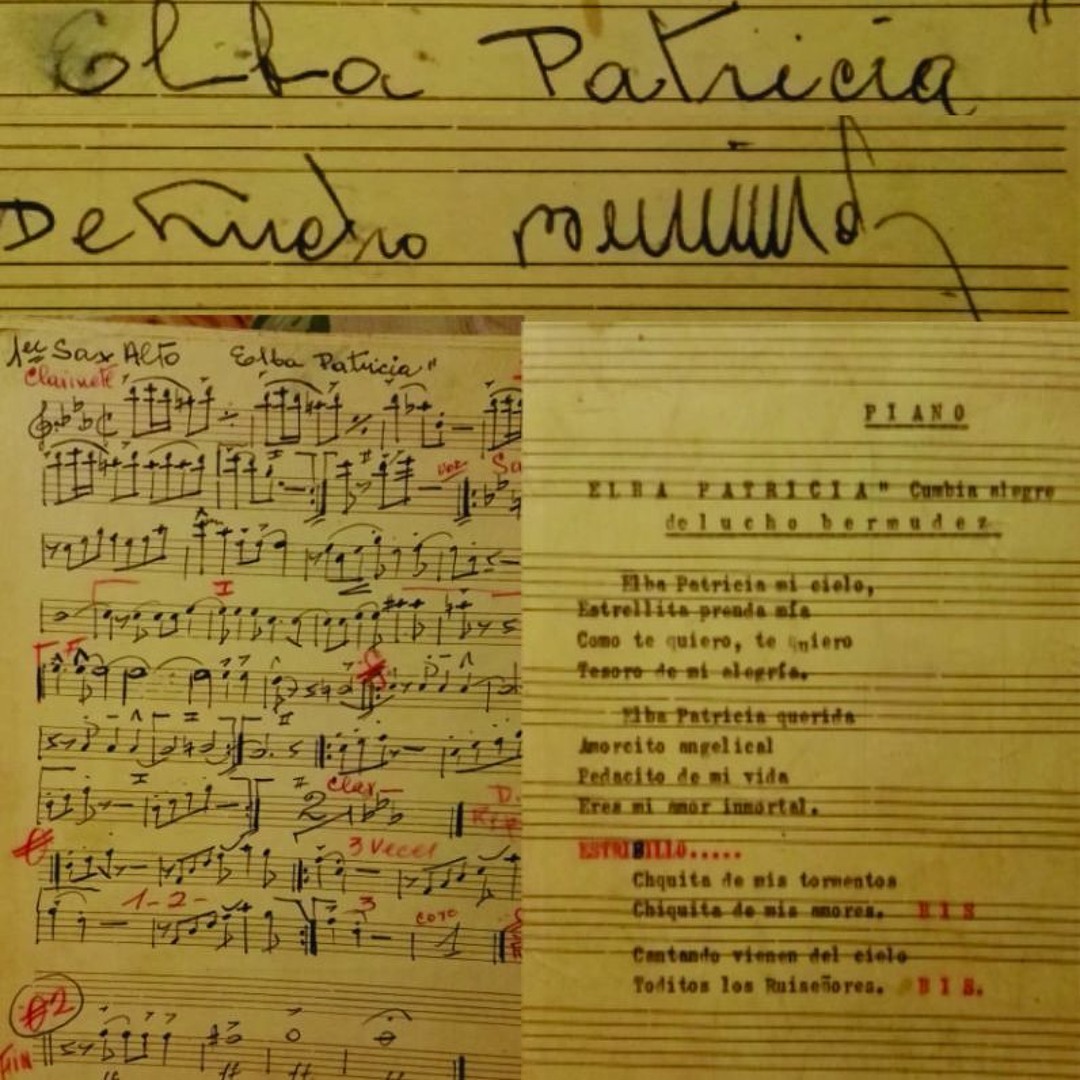 Elba Patricia"
De Lucho Bermudez
1er Sax Alto Elba Patricia"
Clarinete
voz Sa
I
II
I
F
I II
I II Clar.
2 D.
3 Veces
1-2- 3
coro
1
#2
Fin
PIANO
ELBA PATRICIA" Cumbia alegre
de lucho bermudez
Elba Patricia mi cielo,
Estrellita prenda mía
Como te quiero, te quiero
Tesoro de mi alegría.
Elba Patricia querida
Amorcito angelical
Pedacito de mi vida
Eres mi amor inmortal.
ESTRIBILLO.....
Chquita de mis tormentos
Chiquita de mis amores. BIS
Cantando vienen del cielo
Toditos los Ruiseñores. BIS.